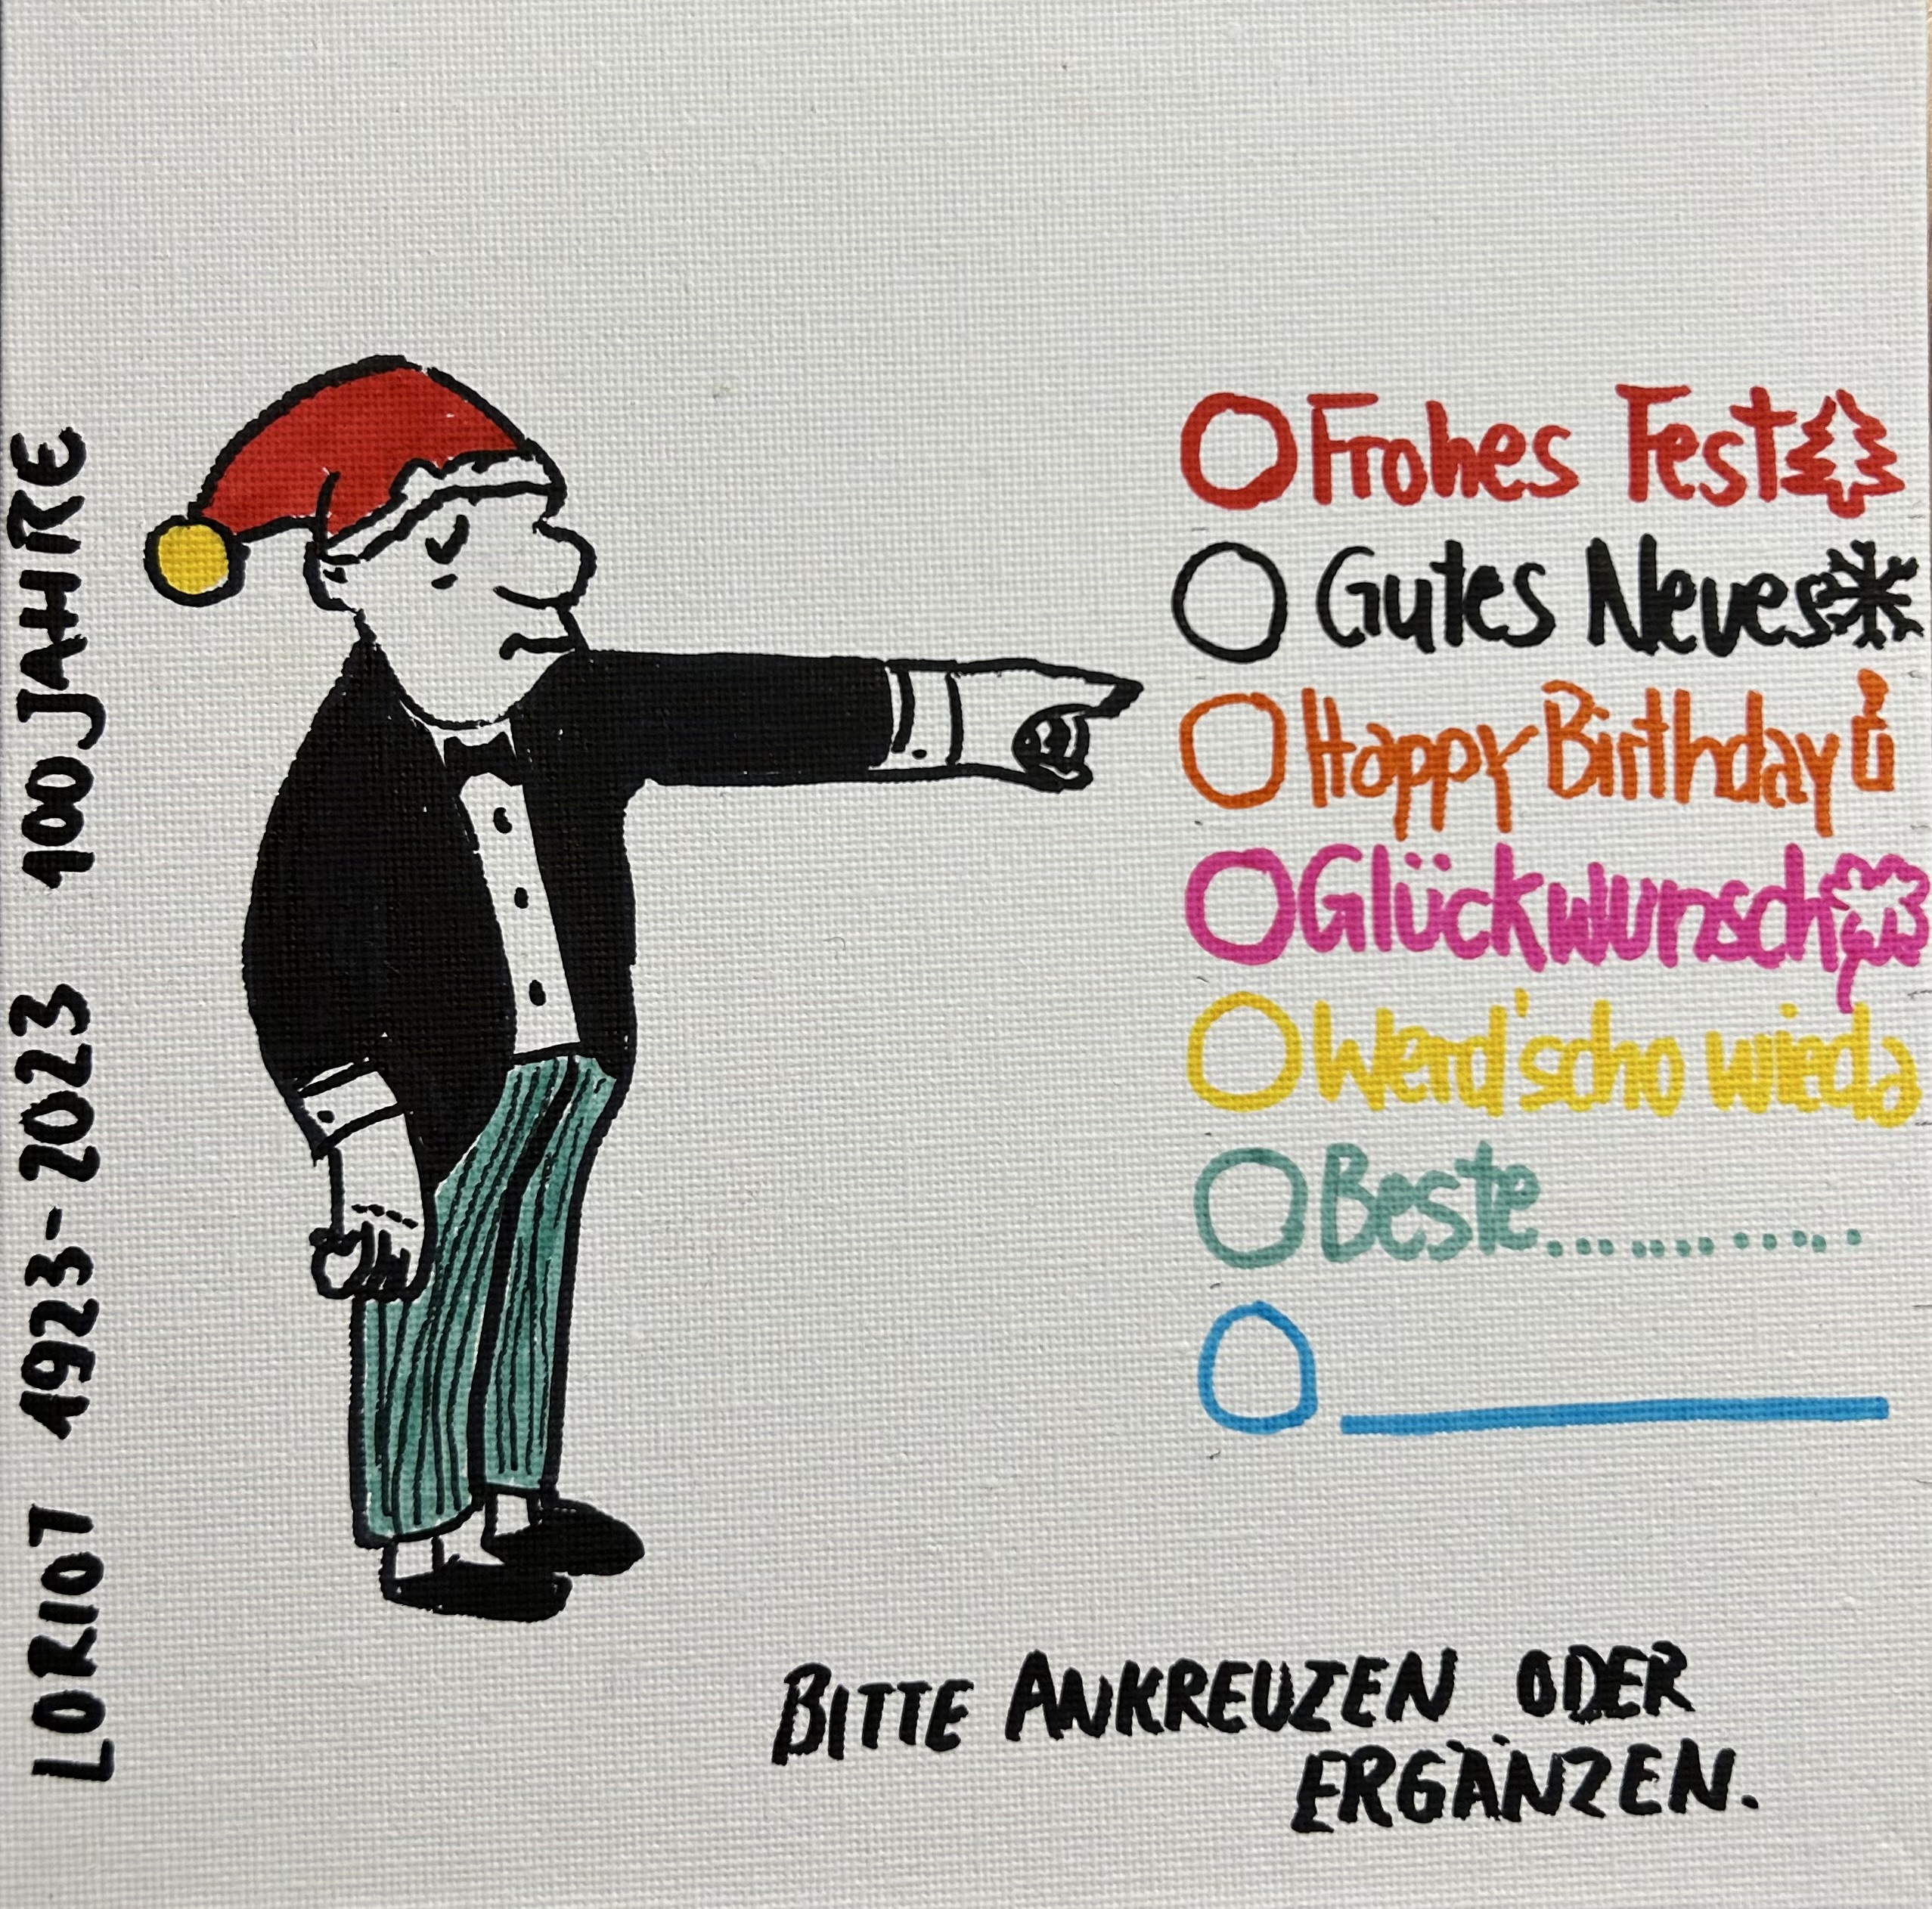 LORIOT 1923-2023 100 JAHRE
Frohes Fest
Gutes Neues
Happy Birthday
Glückwunsch
Werd'scho wieda
Beste..............
BITTE ANKREUZEN ODER
ERGÄNZEN.